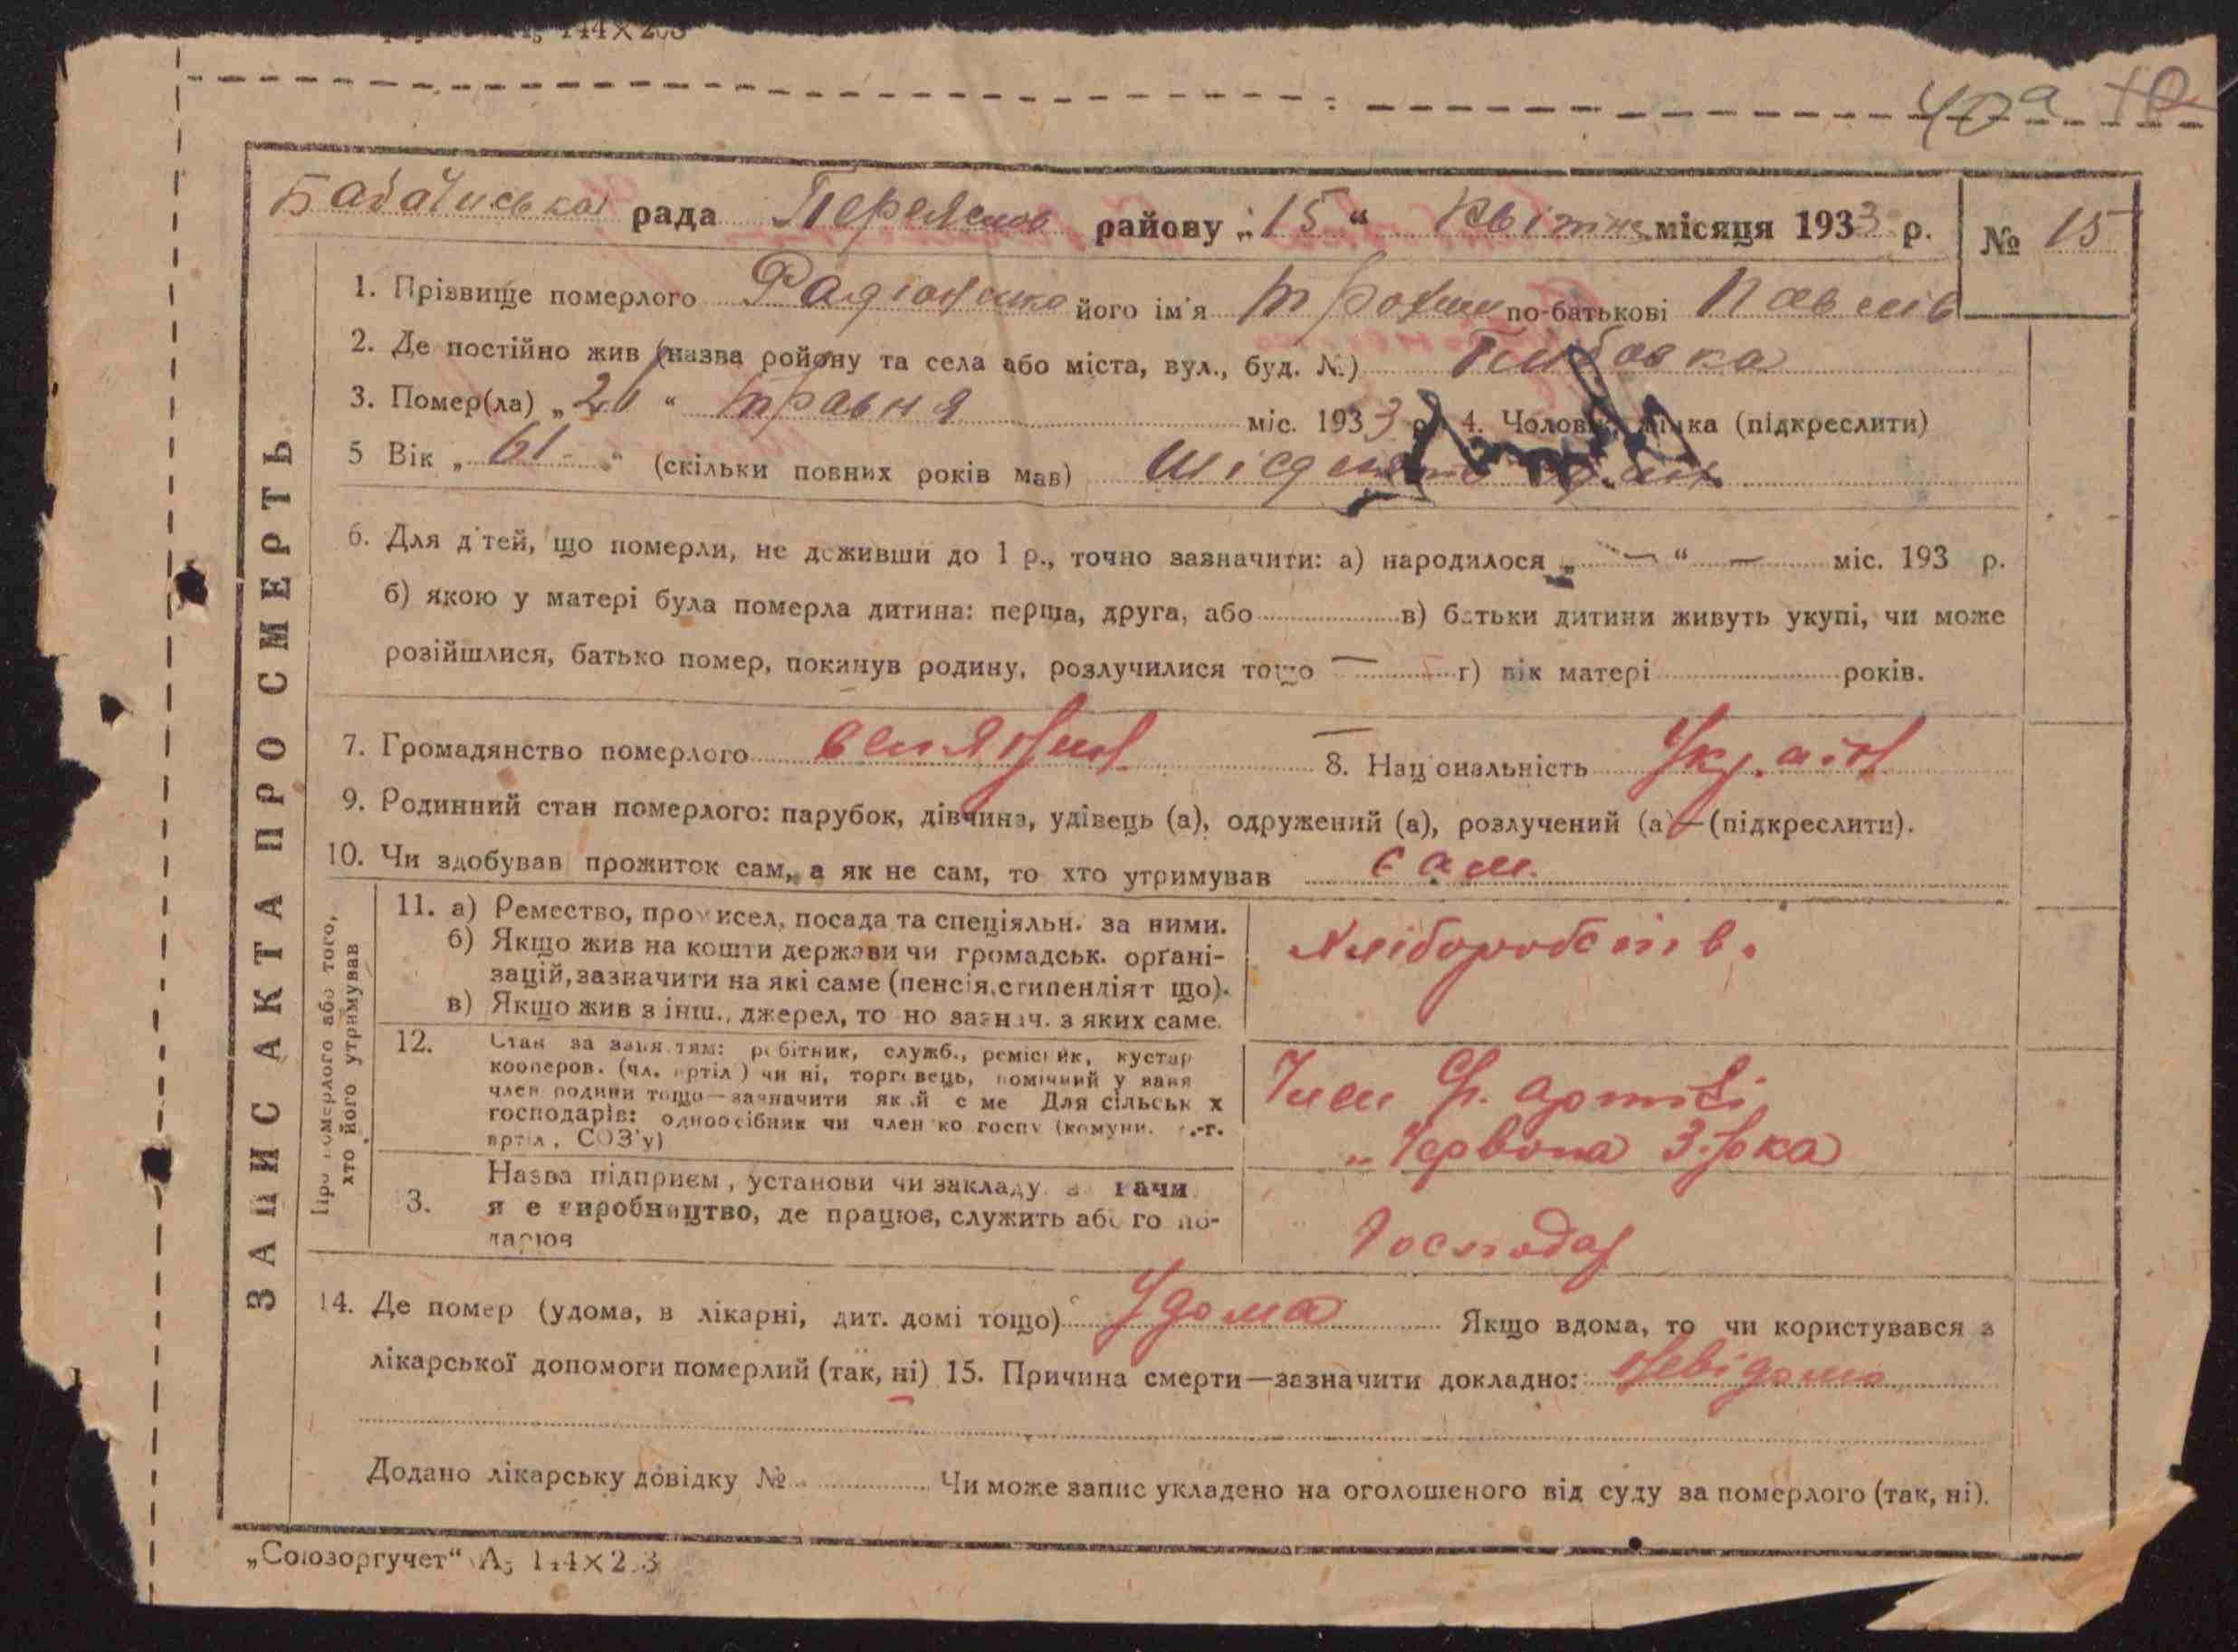 144×203
40а 40
Бабачиська рада Переяслов району „15“ Квітня місяця 1933 р. № 15
1. Прізвище померлого Радіонико його ім'я Трохим по-батькові Павлів
2. Де постійно жив (назва ройону та села або міста, вул., буд. №)
3. Помер(ла) „21“ травня міс. 1933 р. 4. Чоловік, жінка (підкреслити)
5 Вік „61“ (скільки повних років мав) Шісдисят один
6. Для дітей, що померли, не доживши до 1 р., точно зазначити: а) народилося „—“ — міс. 193 р.
б) якою у матері була померла дитина: перша, друга, або в) батьки дитини живуть укупі, чи може
розійшлися, батько помер, покинув родину, розлучилися тощо — г) вік матері років.
7. Громадянство померлого 8. Національність Україн
9. Родинний стан померлого: парубок, дівчина, удівець (а), одружений (а), розлучений (а)—(підкреслити).
10. Чи здобував прожиток сам, а як не сам, то хто утримував сам.
ЗАПИС АКТА ПРО СМЕРТЬ
Про померлого або того,
хто його утримував
11. а) Ремество, промисел, посада та спеціяльн. за ними.
б) Якщо жив на кошти держави чи громадськ. орґані-
зацій, зазначити на які саме (пенсія, стипендіят що).
в) Якщо жив з інш., джерел, то но зазнач. з яких саме.
Хліборобств.
12. Стан за заняттям: робітник, служб., ремісник, кустар
кооперов. (чл. артіл) чи ні, торговець, помічний у ваня
член родини тощо—зазначити який с ме Для сільськ х
господарів: одноосібник чи член ко госпу (комуни. с.-г.
артіл, СОЗ'у)
Член С. артілі
„Червона Зірка
3. Назва підприєм, установи чи закладу
я е виробництво, де працює, служить або го по-
дарює
Господар
14. Де помер (удома, в лікарні, дит. домі тощо) Удома Якщо вдома, то чи користувався з
лікарської допомоги померлий (так, ні) 15. Причина смерти—зазначити докладно: невідома
Додано лікарську довідку № Чи може запис укладено на оголошеного від суду за померлого (так, ні).
„Союзоргучет“ А5 144×203